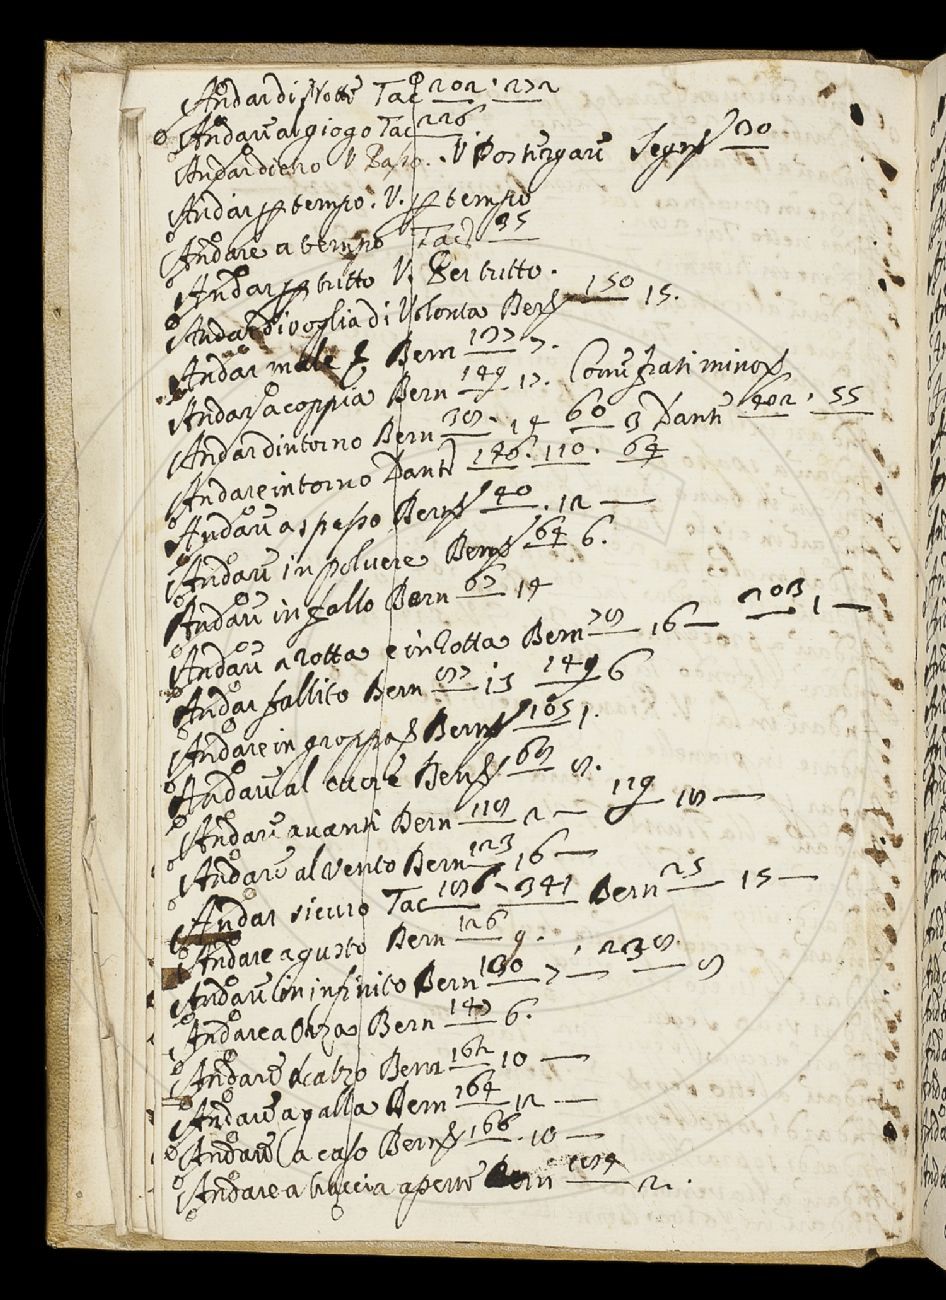 Andar di Notte Tac 202 · 272
Andare al giogo Tac 226
Andar dietro V Basso . V Postergare Segr 30
Andar p tempo . V . p tempo
Andare a tempo Tac 35
Andar p tutto V . Per tutto .
Andar di voglia di Volonta Bern 150 15 .
Andar male Bern 137 7 .
Andar a coppia Bern 149 17 . Come frati minori
Andar dintorno Bern 38 . 14 60 3 Dante 402 · 55
Andare intorno Dante 146 . 110 . 64
Andare a spasso Bern 40 . 12 —
Andare in polvere Bern 64 6 .
Andare in fallo Bern 67 14
Andare a rotta e in Rotta Bern 78 16 — 203 1 —
Andar fallito Bern 87 13 149 6
Andare in groppa Bern 165 1 .
Andare al cuore Bern 68 8 .
Andare avanti Bern 118 2 — 119 18 —
Andare al vento Bern 123 16 —
Andar sicuro Tac 186 · 341 Bern 25 15 —
Andare a gusto Bern 126 9 .
Andare in infinito Bern 130 7 — 238 8
Andare a Bern 147 6 .
Andare scalzo Bern 162 10 —
Andare a galla Bern 164 12 —
Andare a caso Bern 166 . 10 —
Andare a braccia aperte Bern 2 .